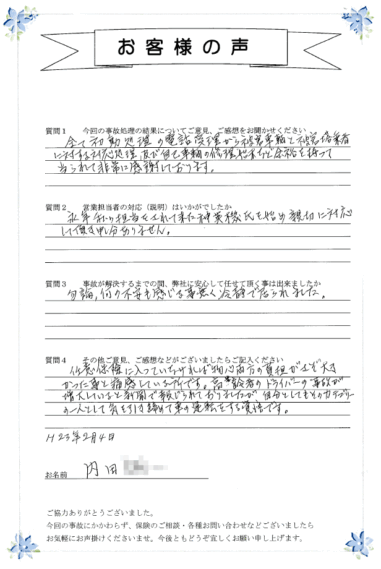 お客様の声
質問1 今回の事故処理の結果についてご意見、ご感想をお聞かせください
全て初動処理の電話受理から被害車輌と被害者
に対する対応処理及び自己車輌の修理始末など余裕を持って
当られて非常に感謝しております。
質問2 営業担当者の対応(説明)はいかがでしたか
氏を始め親切に対応
して頂き申し分ありません。
質問3 事故が解決するまでの間、弊社に安心して任せて頂く事は出来ましたか
勿論、何の不安も感じる事無く冷静で居られました。
質問4 その他ご意見、ご感想などがございましたらご記入ください
任意保険に入っていなければ物心両方の負担がほど大き
かった事と痛感している所です。高齢者のドライバーの事故が
増大していると新聞で報じられておりましたが自分としてもそのカテゴリー
の一人として気を引き締めて車の運転をする覚悟です。
H23年2月4日
お名前 内田
ご協力ありがとうございました。
今回の事故にかかわらず、保険のご相談・各種お問い合わせなどございましたら
お気軽にお声掛けくださいませ。今後ともどうぞ宜しくお願い申し上げます。